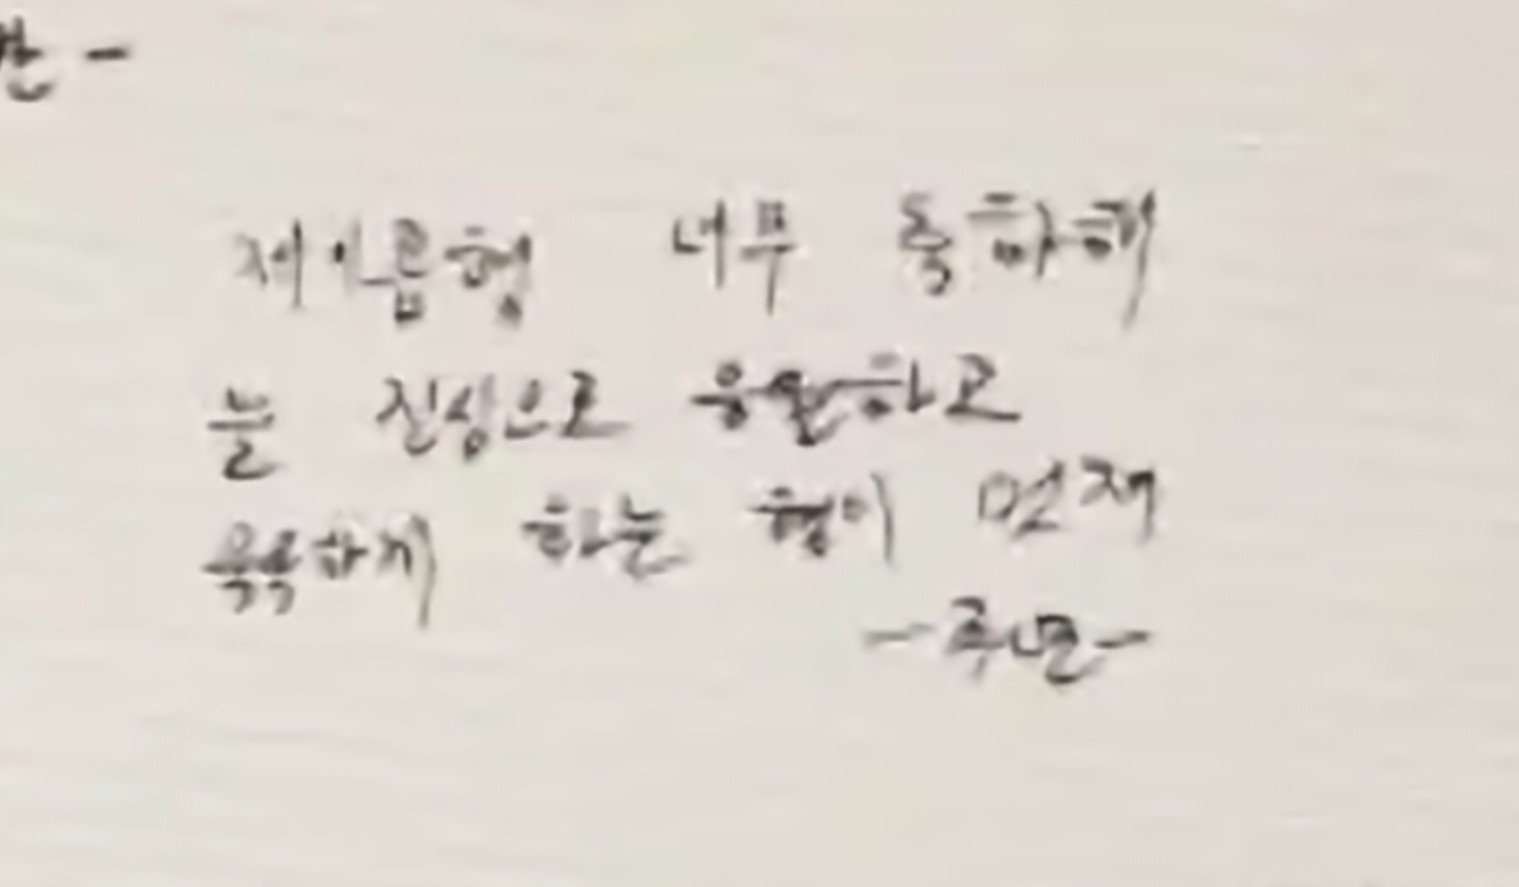 한 -
제이릅형 너무 통하해
늘 진심으로 응원하고
묵묵하게 하는 형이 멋재
- 주년 -